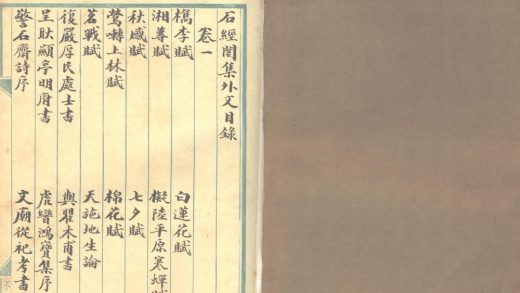 石經閣集外文目錄
卷一
檇李賦 白蓮花賦
湘尊賦 擬陸平原寒蟬賦
秋感賦 七夕賦
鶯囀上林賦 棉花賦
茗戰賦 天施地生論
復嚴厚民處士書 與瞿木甫書
呈耿顯亭明府書 虎蠻鴻寶集序
警石齋詩序 文廟從祀考書